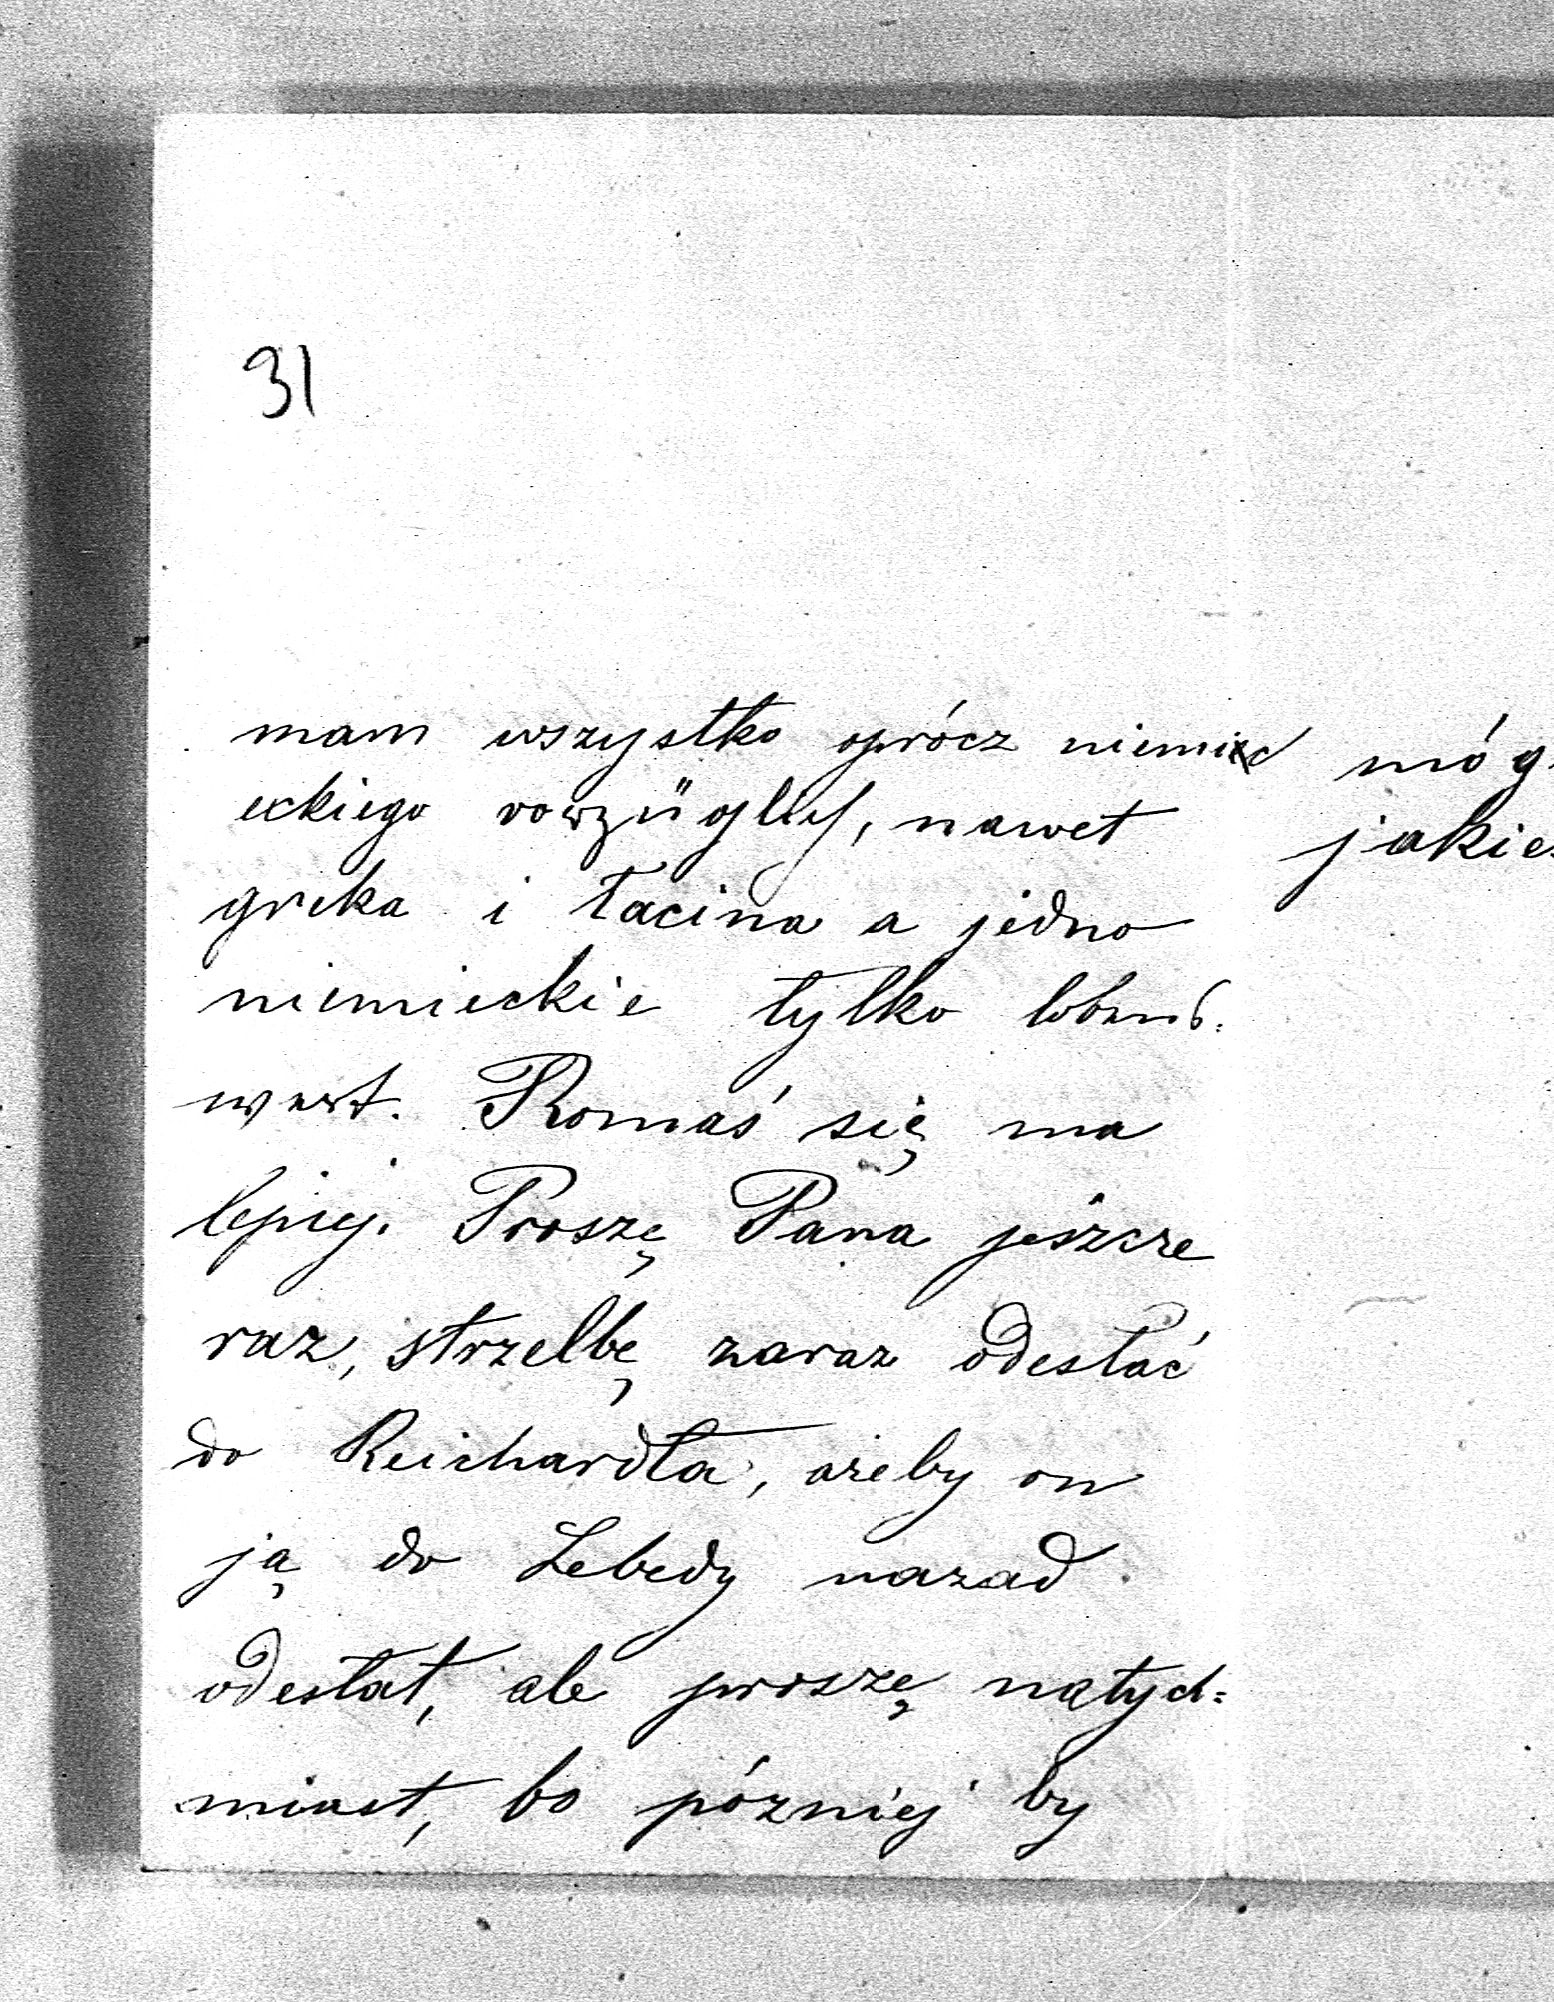 31
mam wszystko oprócz niemi
eckiego vorzüglich, nawet
greka i łacina a jedno
niemieckie tylko lobens=
wert. Romaś się ma
lepiej. Proszę Pana jeszcze
raz, strzelbę zaraz odesłać
do Reichardta, ażeby on
ją do Lebedy nazad
odesłał, ale proszę natych=
miast, bo pózniej by
móg
jakie